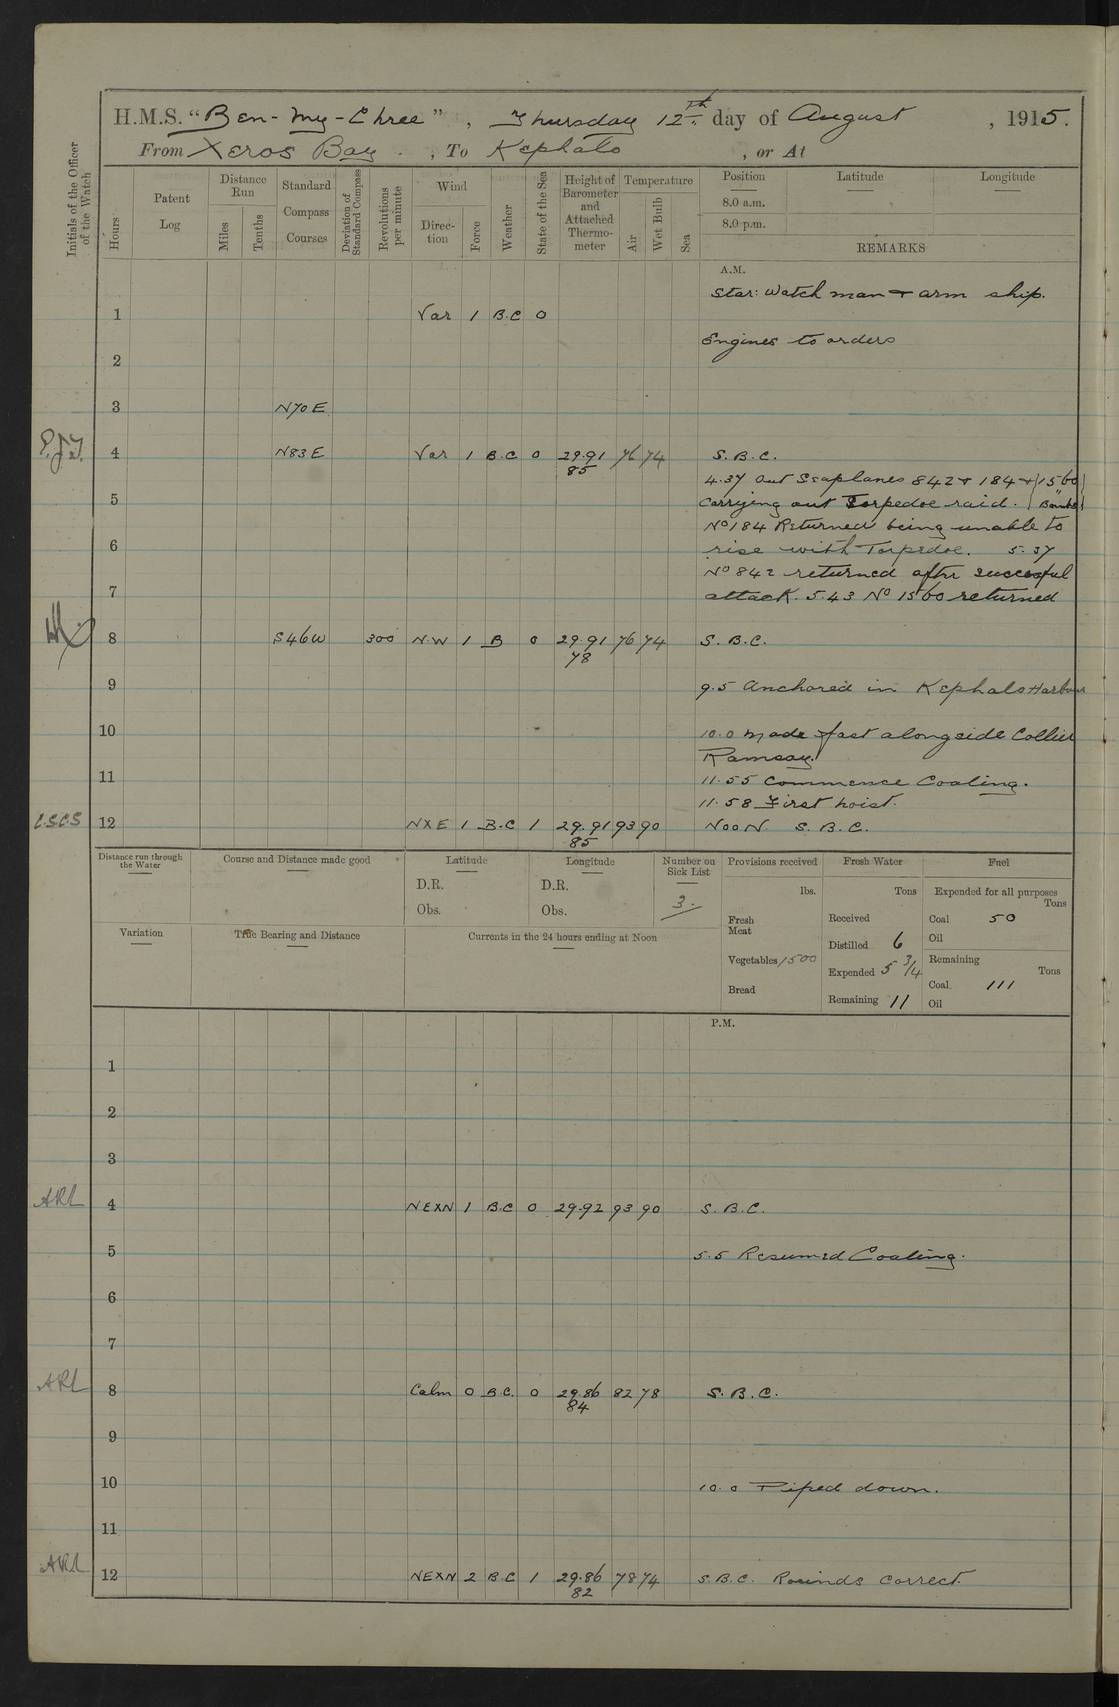 H.M.S. "Ben-my-Chree", Thursday 12th. day of August, 1915.
From Xeros Bay. , To Kephalo , or At
Initials of the Officer of the Watch
Hours
Patent Log
Distance Run
Miles
Tenths
Standard Compass Courses
Deviation of Standard Compass
Revolutions per minute
Wind
Direction
Force
Weather
State of the Sea
Height of Barometer and Attached Thermometer
Temperature
Air
Wet Bulb
Sea
Position Latitude Longitude
8.0 a.m.
8.0 p.m.
REMARKS
A.M.
Star: Watch man & arm ship.
1 Var 1 B.C 0
Engines to orders
2
3 N70E
4 N83E Var 1 B.C 0 29.91 76 74 S.B.C.
85
4.37 Out Seaplanes 842 & 184 & (1560
5 Carrying out Torpedoe raid. (Bombs)
No 184 Returned being unable to
6 rise with Torpedoe. 5.37
No 842 returned after successful
7 attack. 5.43 No 1560 returned
8 S46W 300 N.W 1 B 0 29.91 76 74 S.B.C.
78
9 9.5 Anchored in Kephalo Harbour
10 10.0 Made fast alongside Collier
Ramsay.
11 11.55 Commence Coaling.
11.58 First hoist.
C.S.C.S 12 NXE 1 B.C 1 29.91 93 90 Noon S.B.C.
85
Distance run through the Water
Course and Distance made good
Latitude
D.R.
Obs.
Longitude
D.R.
Obs.
Number on Sick List
3.
Provisions received
lbs.
Fresh Meat
Vegetables 1500
Bread
Fresh Water
Tons
Received
Distilled 6
Expended 5 3/4
Remaining 11
Fuel
Expended for all purposes
Tons
Coal 50
Oil
Remaining
Tons
Coal 111
Oil
Variation
True Bearing and Distance
Currents in the 24 hours ending at Noon
P.M.
1
2
3
ARL 4 NEXN 1 B.C 0 29.92 93 90 S.B.C.
5 5.5 Resumed Coaling.
6
7
ARL 8 Calm 0 B.C. 0 29.86 82 78 S.B.C.
84
9
10 10.0 Piped down.
11
ARL 12 NEXN 2 B.C 1 29.86 78 74 S.B.C. Rounds correct.
82